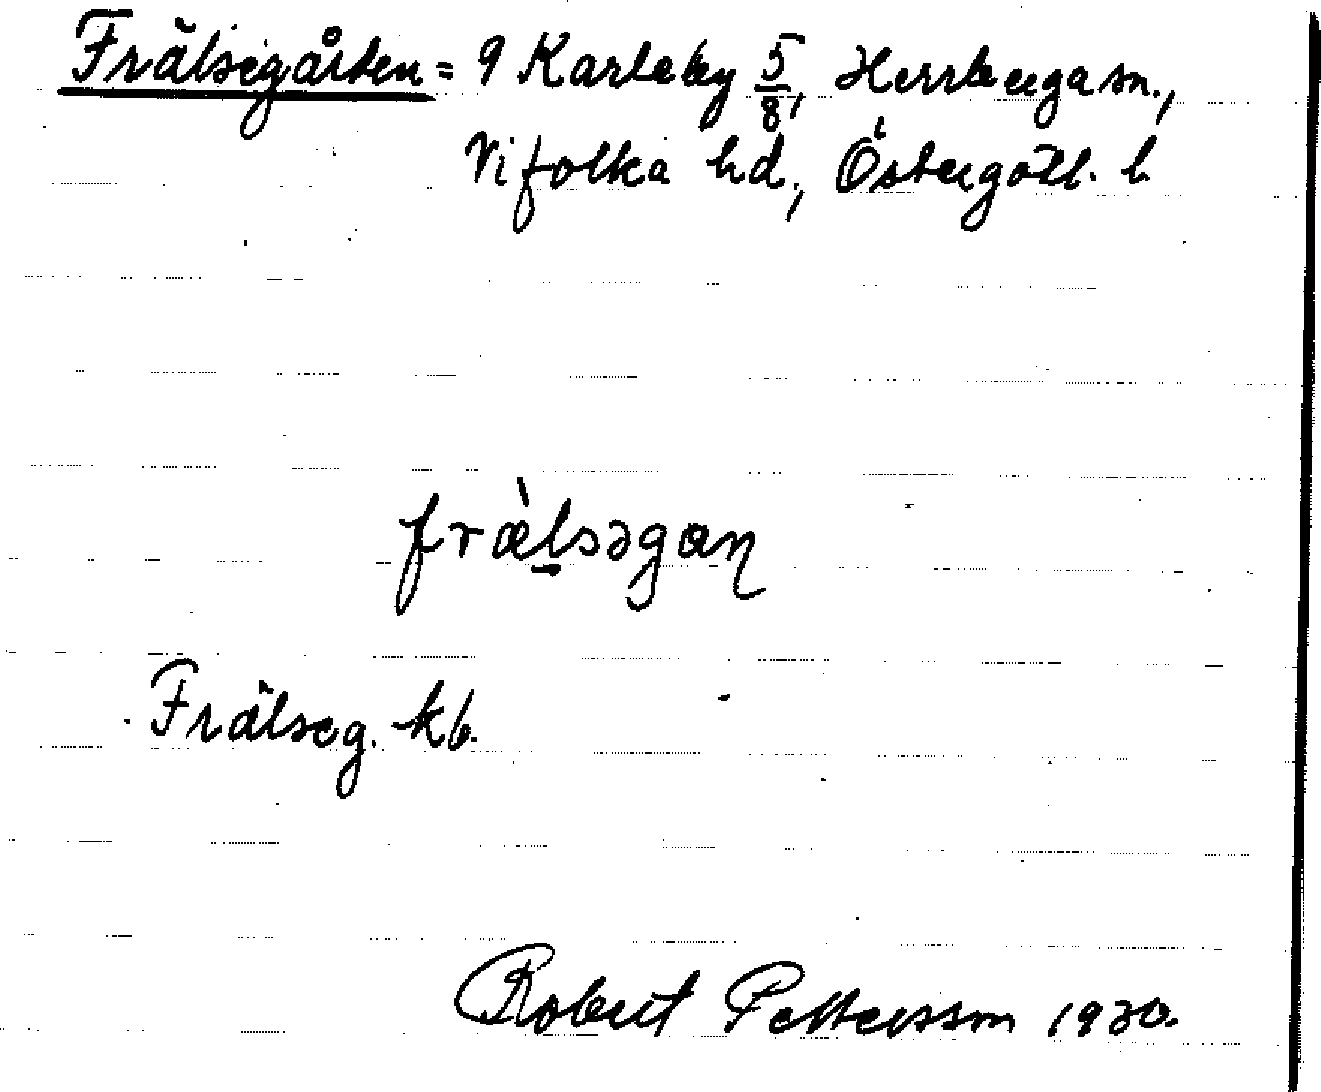 Frälsegården = 9 Karleby 5/8, Herrberga sn.,
Vifolka hd., Östergötl. l.
frælsəgaɳ
Frälseg. kb.
Robert Pettersson 1930.